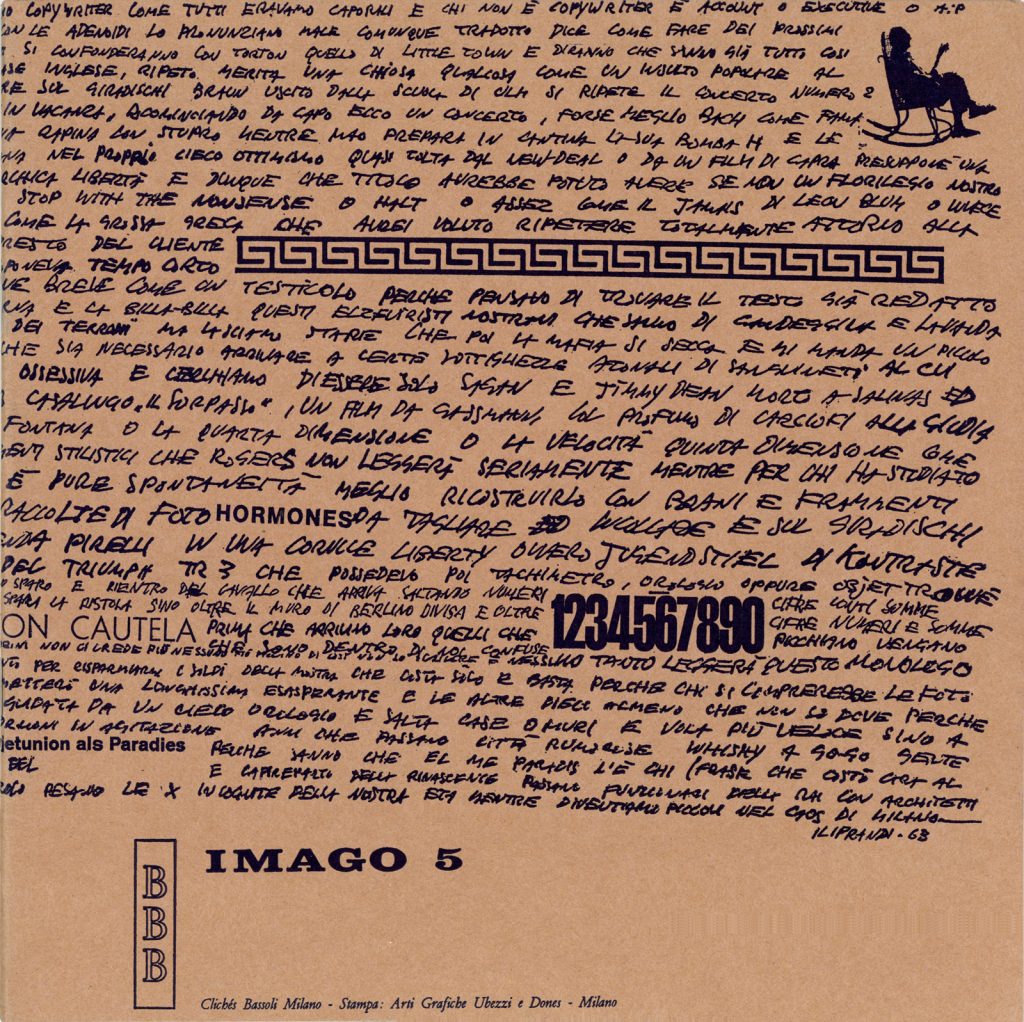 COPYWRITER COME TUTTI ERAVAMO CAPORALI E CHI NON È COPYWRITER È ACCOUNT O EXECUTIVE O A.P
LE ADENOIDI LO PRONUNZIANO MALE COMUNQUE TRADOTTO DICE COME FARE DEI PROSSIMI
SI CONFONDERANNO CON TORTON QUELLO DI LITTLE TOWN E DIRANNO CHE SANNO GIÀ TUTTO COSI
INGLESE, RIPETO MERITA UNA CHIOSA QUALCOSA COME UN INSULTO POPOLARE AL
RE SUL GIRADISCHI BRAUN USCITO DALLA SCUOLA DI ULM SI RIPETE IL CONCERTO NUMERO 2
IN VACANZA, RICOMINCIANDO DA CAPO ECCO UN CONCERTO, FORSE MEGLIO BACH COME FAMA
NA RAPINA CON STUPRO MENTRE MAO PREPARA IN CANTINA LA SUA BOMBA H E LE
NA NEL PROPRIO CIECO OTTIMISMO QUASI TOLTA DAL NEW DEAL O DA UN FILM DI CAPRA PRESUPPONE UNA
RCHICA LIBERTÀ E DUNQUE CHE TITOLO AVREBBE POTUTO AVERE SE NON UN FLORILEGIO NOSTRO
STOP WITH THE NONSENSE O HALT O ASSEZ COME IL J'AMAIS DI LEON BLUM O INVECE
COME LA GROSSA GRECA CHE AVREI VOLUTO RIPETERE TOTALMENTE ATTORNO ALLA
RESTO DEL CLIENTE
PONEVA TEMPO CORTO
VE BREVE COME UN TESTICOLO PERCHE PENSAVO DI TROVARE IL TESTO GIÀ REDATTO
NA E LA BILLA-BILLA QUESTI ELZEVIRISTI NOSTRANI CHE SANNO DI CANDEGGINA E LAVANDA
DEI TERRONI" MA LASCIAMO STARE CHE POI LA MAFIA SI SECCA E MI MANDA UN PICCOLO
HE SIA NECESSARIO ARRIVARE A CERTE SOTTIGLIEZZE ATONALI DI SANGUINETI AL CUI
OSSESSIVA E CERCHIAMO DI ESSERE SOLO SAGAN E JIMMY DEAN MORTO A SALINAS ED
CASALINGO "IL SORPASSO", UN FILM DA GASSMANN, COL PROFUMO DI CARCIOFI ALLA GIUDIA
FONTANA O LA QUARTA DIMENSIONE O LA VELOCITÀ QUINTA DIMENSIONE COME
MENTI STILISTICI CHE ROGERS NON LEGGERÀ SERIAMENTE MENTRE PER CHI HA STUDIATO
È PURE SPONTANEITÀ MEGLIO RICOSTRUIRLO CON BRANI E FRAMMENTI
RACCOLTE DI FOTO HORMONES DA TAGLIARE ED INCOLLARE E SUL GIRADISCHI
ENDA PIRELLI IN UNA CORNICE LIBERTY OVVERO JUGENDSTIEL DI KONTRASTE
DEL TRIUMPH TR3 CHE POSSEDEVO POI TACHIMETRO, OROLOGIO OPPURE OBJET TROUVE
SPARO E RIENTRO DEL CAVALLO CHE ARRIVA SALTANDO NUMERI 1234567890 CIFRE CONTI SOMME
SPARA LA PISTOLA SINO OLTRE IL MURO DI BERLINO DIVISA E OLTRE CIFRE NUMERI E SOMME
ON CAUTELA PRIMA CHE ARRIVINO LORO QUELLI CHE PICCHIANO VENGANO
NON CI CREDE PIÙ NESSUNO CHE SONO DENTRO DI NOI CONFUSE
E NESSUNO TANTO LEGGERÀ QUESTO MONOLOGO
PER RISPARMIARE I SOLDI DELLA MOSTRA CHE COSTA SOLO E BASTA PERCHE CHI SI COMPREREBBE LE FOTO
METTERÒ UNA LUNGHISSIMA ESASPERANTE E LE ALTRE DIECI ALMENO CHE NON SO DOVE PERCHE
GUIDATA DA UN CIECO OROLOGIO E SALTA CASE O MURI E VOLA PIÙ VELOCE SINO A
ORMONI IN AGITAZIONE ANNI CHE PASSANO CITTÀ RUMOROSE WHISKY A GOGO GENTE
jetunion als Paradies PERCHE SANNO CHE EL ME PARADIS L'È CHI (FRASE CHE COSTÒ CARA AL
DEL E CAPIREPARTO DELLA RINASCENTE PASSANO FUNZIONARI DELLA RAI CON ARCHITETTI
OLO PESANO LE X INCOGNITE DELLA NOSTRA ETÀ MENTRE DIVENTIAMO PICCOLI NEL CAOS DI MILANO
ILIPRANDI - 63
BBB
IMAGO 5
Clichés Bassoli Milano - Stampa: Arti Grafiche Ubezzi e Dones - Milano